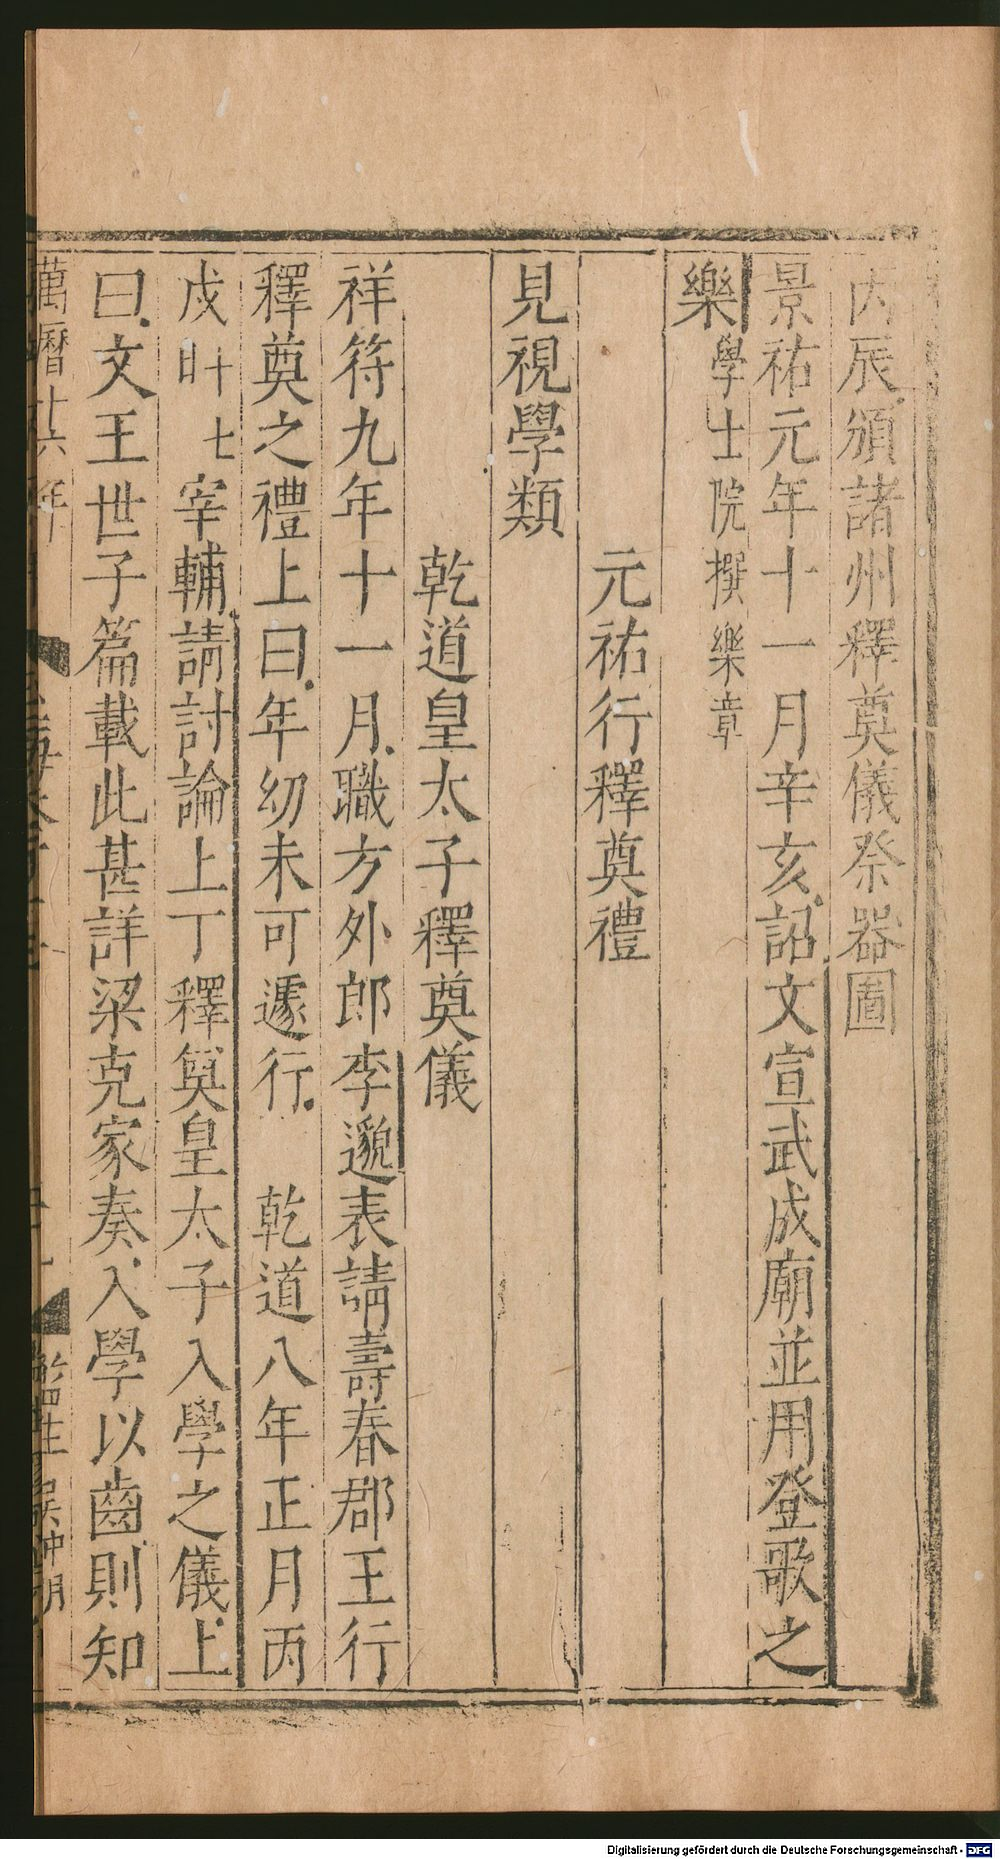 丙辰頒諸州釋奠儀祭器圖
景祐元年十一月辛亥詔文宣武成廟並用登歌之
樂學士院撰樂章
元祐行釋奠禮
見視學類
乾道皇太子釋奠儀
祥符九年十一月職方外郎李邈表請壽春郡王行
釋奠之禮上曰年幼未可遽行 乾道八年正月丙
戌廿七日宰輔請討論上丁釋奠皇太子入學之儀上
曰文王世子篇載此甚詳梁克家奏入學以齒則知
萬曆十六年
監生吳仲明
Digitalisierung gefördert durch die Deutsche Forschungsgemeinschaft - DFG